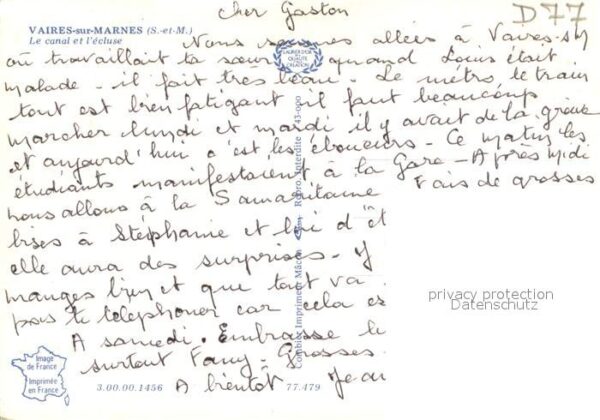 cher Gaston
D77
VAIRES-sur-MARNES (S.-et-M.)
Le canal et l'écluse
Nous sommes allées à Vaires-s/M
où travaillait ta sœur quand Louis était
malade - il fait très beau. Le métro le train
tout est bien fatigant il faut beaucoup
marcher lundi et mardi il y avait de la grève
et aujourd'hui c'est les éboueurs - Ce matin les
étudiants manifestaient à la Gare - Après midi
nous allons à la Samaritaine
Fais de grosses
bises à Stéphanie et lui d
elle aura des surprises -
manges bien et que tout va
pas te téléphoner car cela es
A samedi. Embrasse le
surtout Fany - Grosses
A bientôt
LAURIER D'OR
QUALITÉ
CRÉATION
Combier Imprimeur Mâcon
Repro. Interdite
Image
de France
Imprimée
en France
3.00.00.1456
77.479
privacy protection
Datenschutz